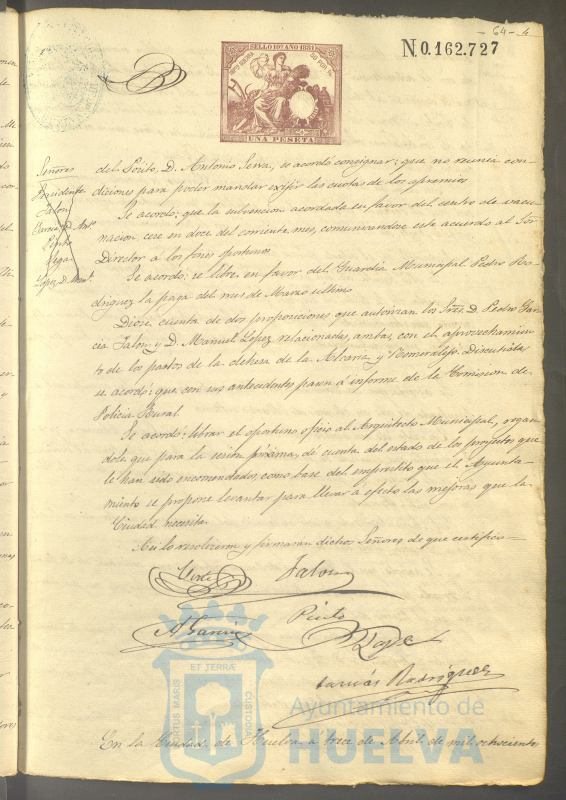 64-4
N.0.162.727
SELLO 10º AÑO 1881
UNA PESETA
Señores
Presidente
Jalon
Garcia D. Antº
Pinto
Vega
Lopez D. Manl
del Pósito, D. Antonio Serra, se acordó consignar; que no reunia con-
diciones para poder mandar exijir las cuotas de los apremios
Se acordo; que la subvencion acordada en favor del centro de vacu-
nacion cese en doce del corriente mes, comunicandose este acuerdo al Sor
Director a los fines oportunos
Se acordo: se libre, en favor del Guardia Municipal Pedro Ro-
driguez la paga del mes de Marzo ultimo
Diose cuenta de dos proposiciones que autorizan los Sres D. Pedro Gar-
cia Jalon y D. Manuel Lopez relacionadas, ambas, con el aprovechamien-
to de los pastos de la dehesa de la Alcaria y Romeralejo. Discutidas
se acordó; que con sus antecedentes pasen á informe de la Comision de
Policia Rural
Se acordo: librar el oportuno oficio al Arquitecto Municipal, rogan-
dole que para la sesion próxima, dé cuenta del estado de los proyectos que
le han sido encomendados, como base del emprestito que el Ayunta-
miento se propone levantar para llevar á efecto las mejoras que la
Ciudad necesita
Asi lo resolvieron y firmaran dichos Señores de que certifico
Jalon
A Garcia
Pinto
Lopez
Rodriguez
ET TERRÆ
PORTUS MARIS
CUSTODIA
Ayuntamiento de
HUELVA
En la Ciudad de Huelva a trece de Abril de mil ochocientos